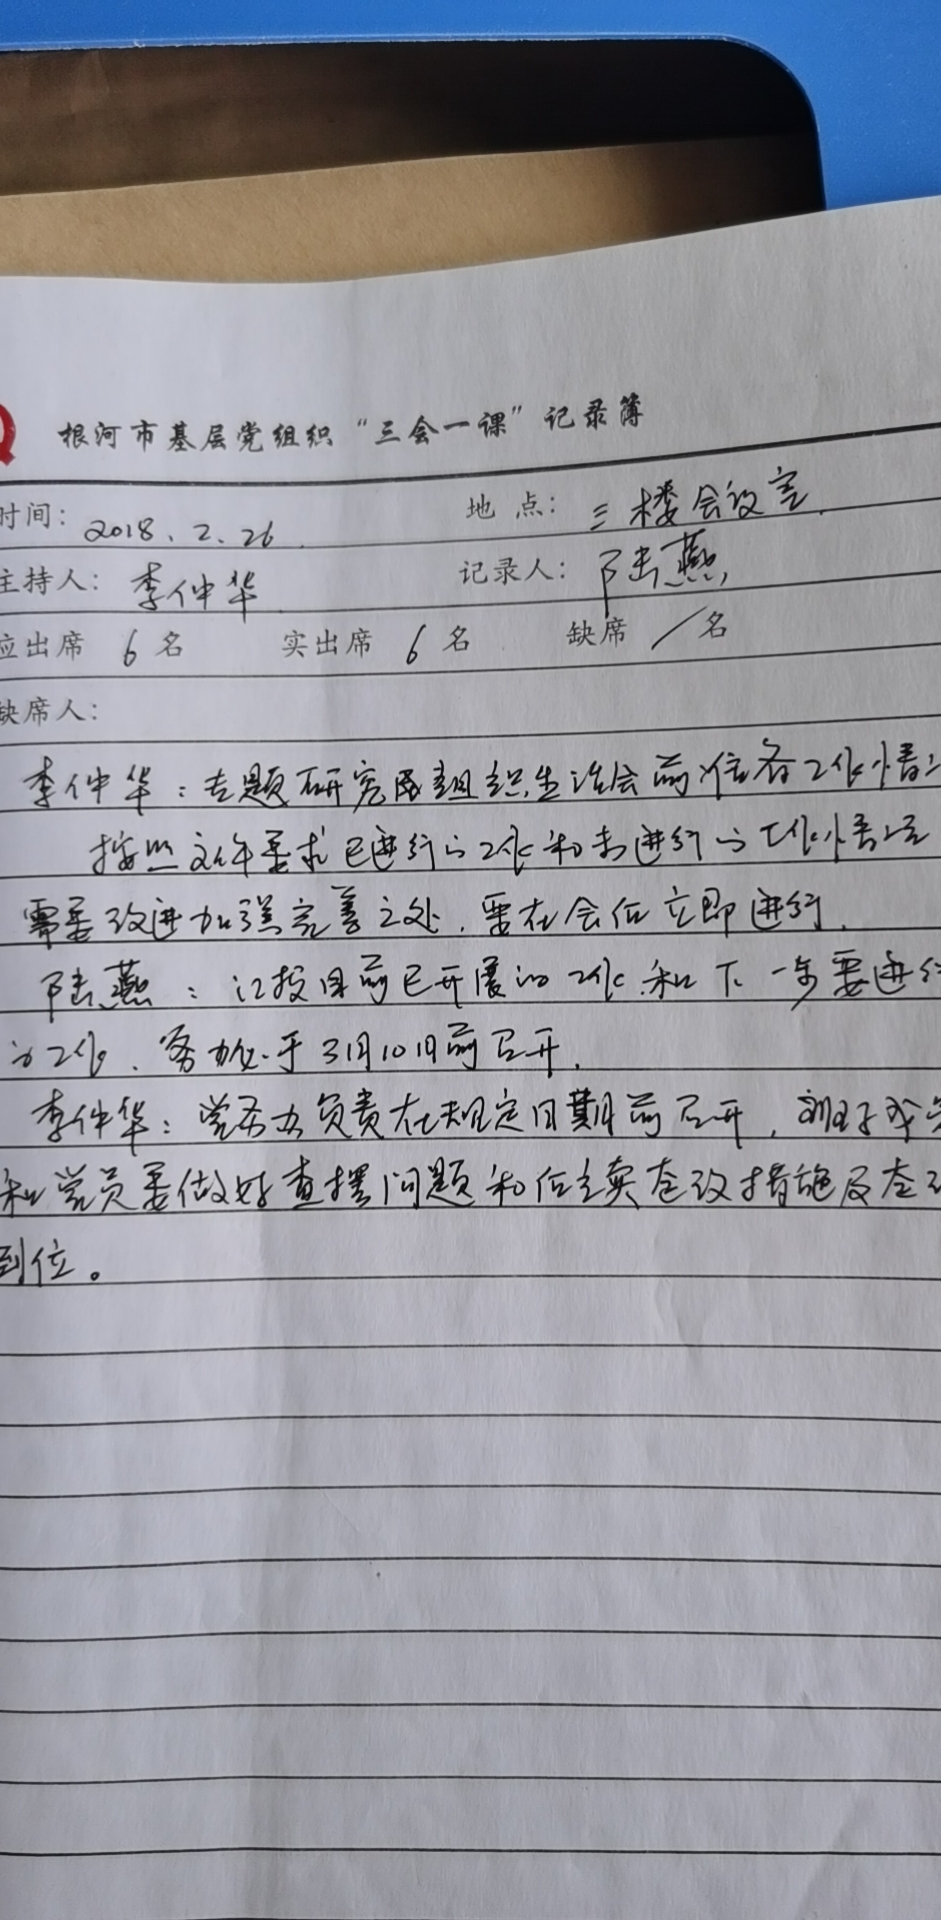 根河市基层党组织“三会一课”记录簿
时间: 2018.2.26. 地点: 三楼会议室.
主持人: 李仲华 记录人: 陆燕
应出席 6 名 实出席 6 名 缺席 / 名
缺席人:
李仲华：专题研究民主组织生活会前准备工作情况
按照文件要求已进行的工作和未进行的工作情况
需要改进加强完善之处，要在会后立即进行.
陆燕：汇报目前已开展的工作和下一步要进行
的工作，务必于3月10日前召开.
李仲华：党委办负责在规定日期前召开，班子成员
和党员要做好查摆问题和后续整改措施及整改
到位。